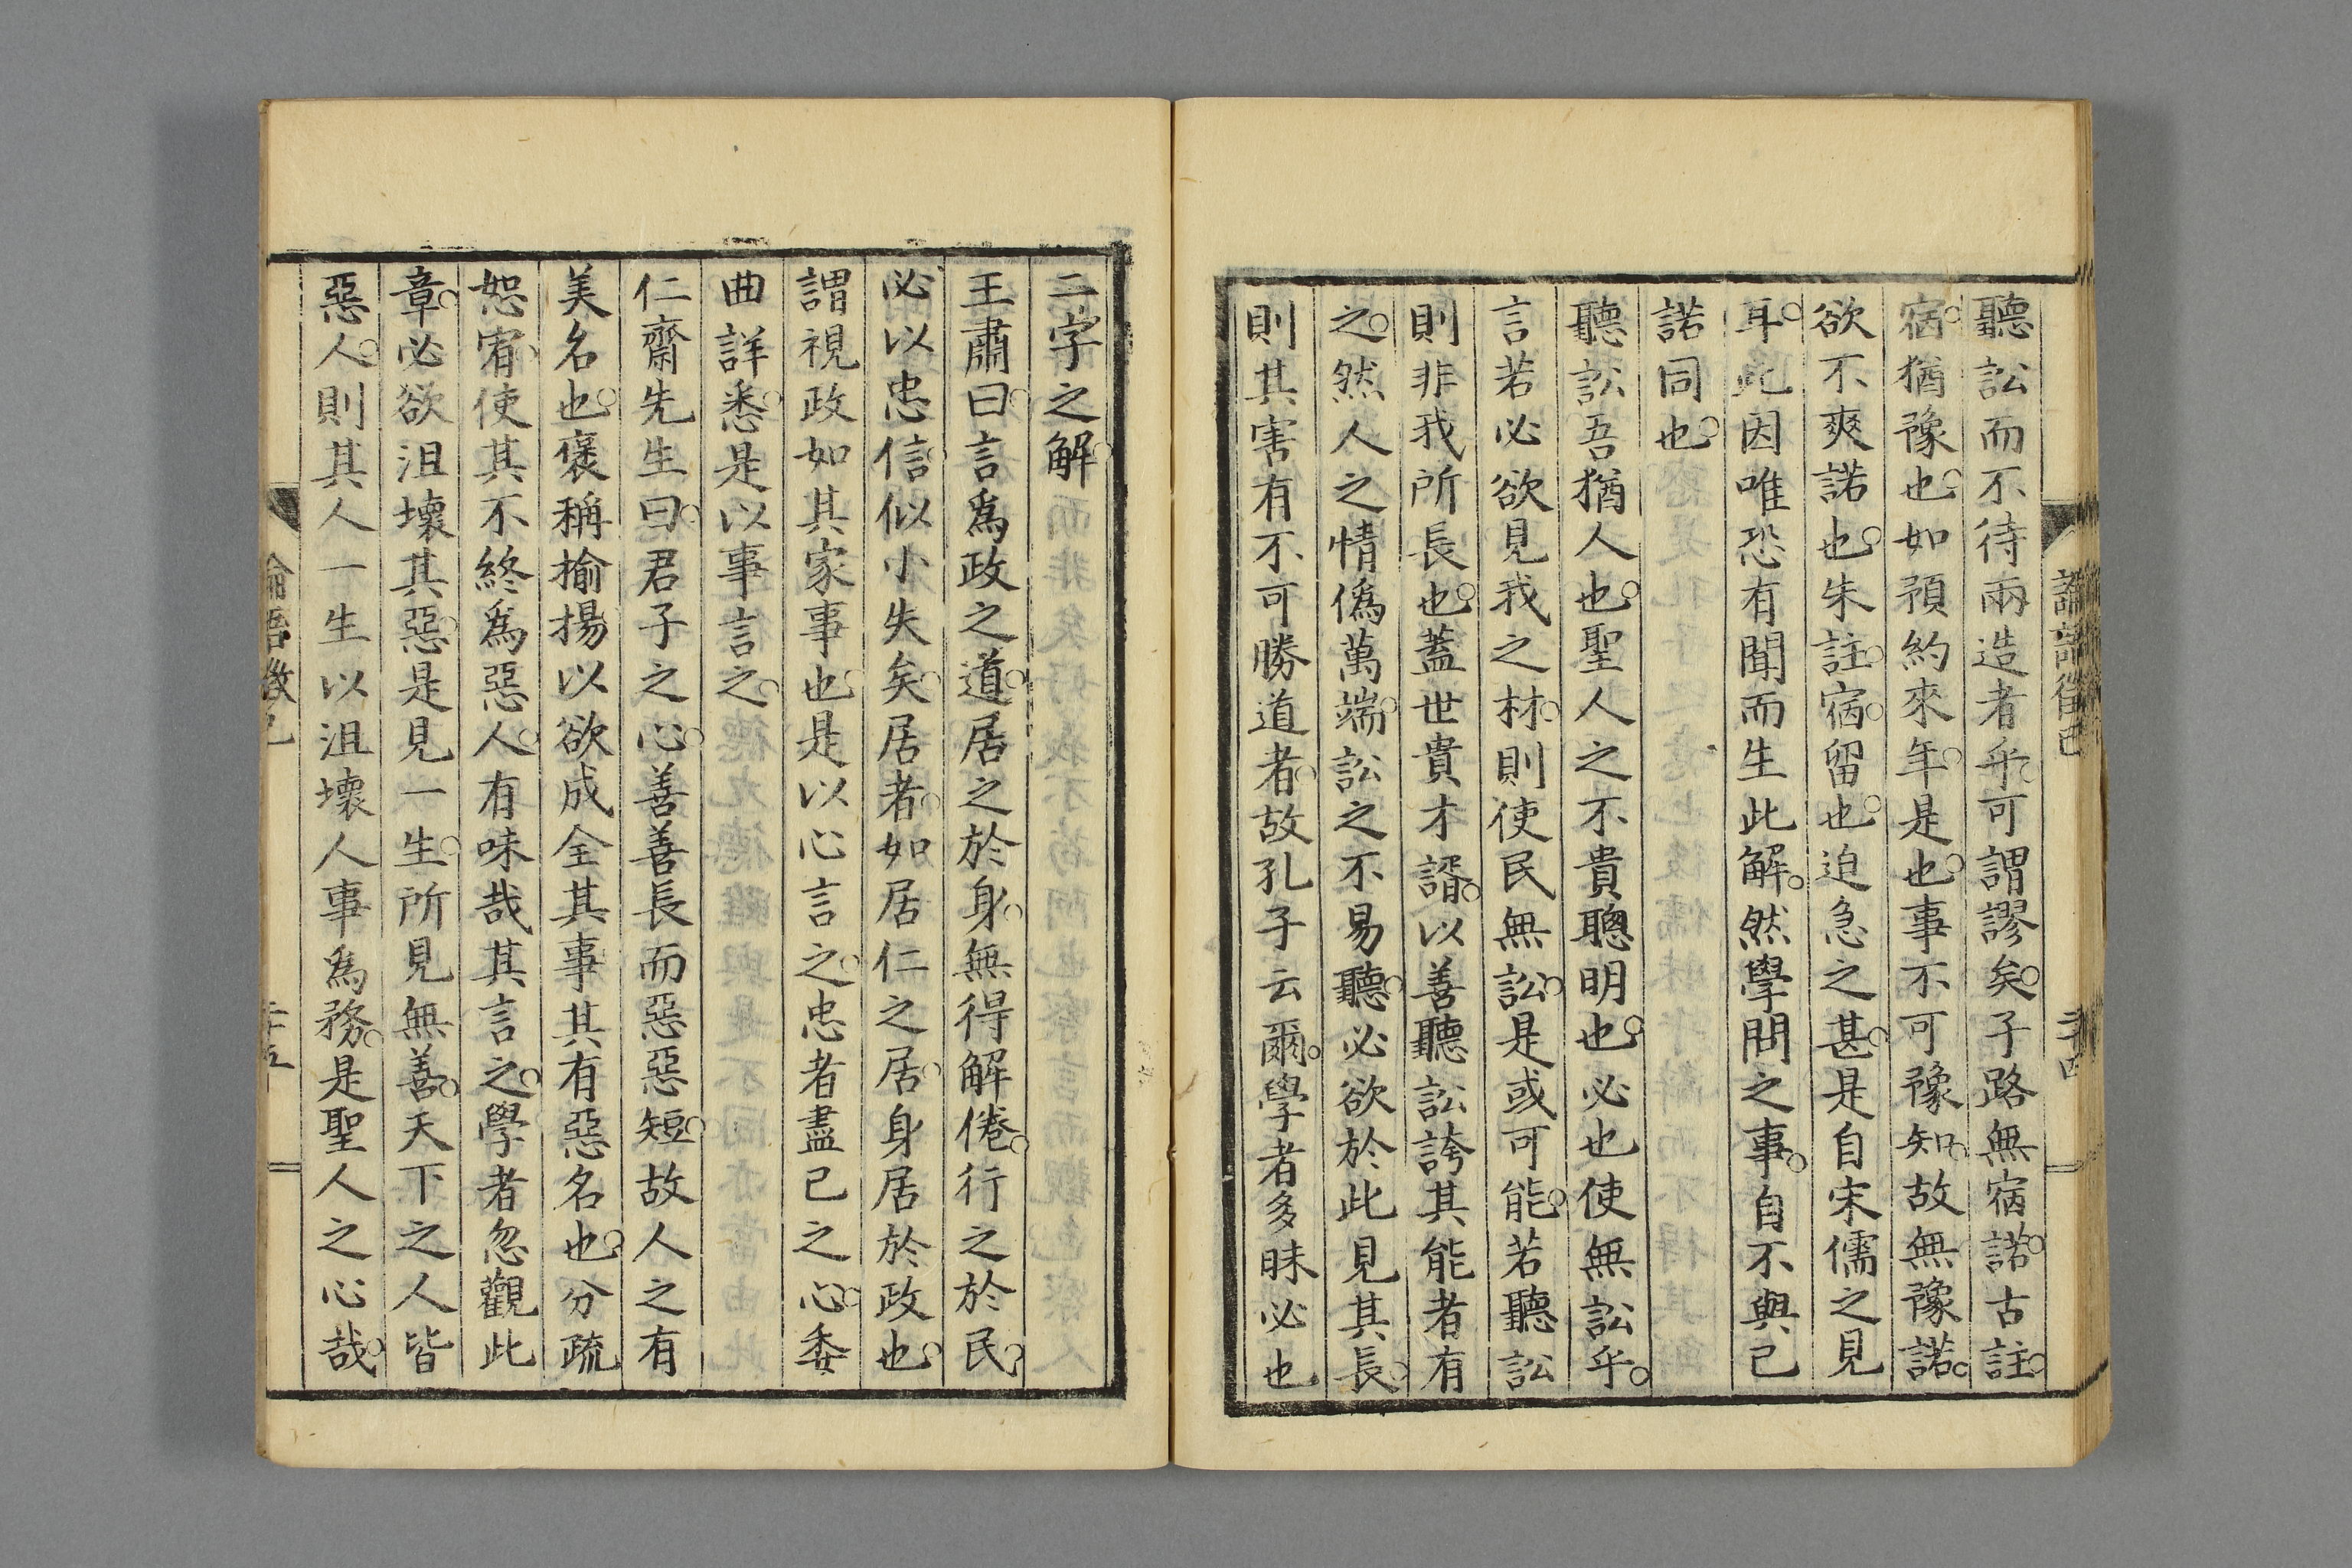 論語徵己
二十四
聽訟而不待兩造者乎可謂謬矣子路無宿諾古註
宿猶豫也如預約來年是也事不可豫知故無豫諾
欲不爽諾也朱註宿留也迫急之甚是自宋儒之見
耳此因唯恐有聞而生此解然學問之事自不與已
諾同也
聽訟吾猶人也聖人之不貴聰明也必也使無訟乎
言若必欲見我之材則使民無訟是或可能若聽訟
則非我所長也蓋世貴才諝以善聽訟誇其能者有
之然人之情僞萬端訟之不易聽必欲於此見其長
則其害有不可勝道者故孔子云爾學者多昧必也
二字之解
王肅曰言爲政之道居之於身無得解倦行之於民
必以忠信似小失矣居者如居仁之居身居於政也
謂視政如其家事也是以心言之忠者盡已之心委
曲詳悉是以事言之
仁齋先生曰君子之心善善長而惡惡短故人之有
美名也褒稱揄揚以欲成全其事其有惡名也分疏
恕宥使其不終爲惡人有味哉其言之學者忽觀此
章必欲沮壞其惡是見一生所見無善天下之人皆
惡人則其人一生以沮壞人事爲務是聖人之心哉
論語徵己
二十五